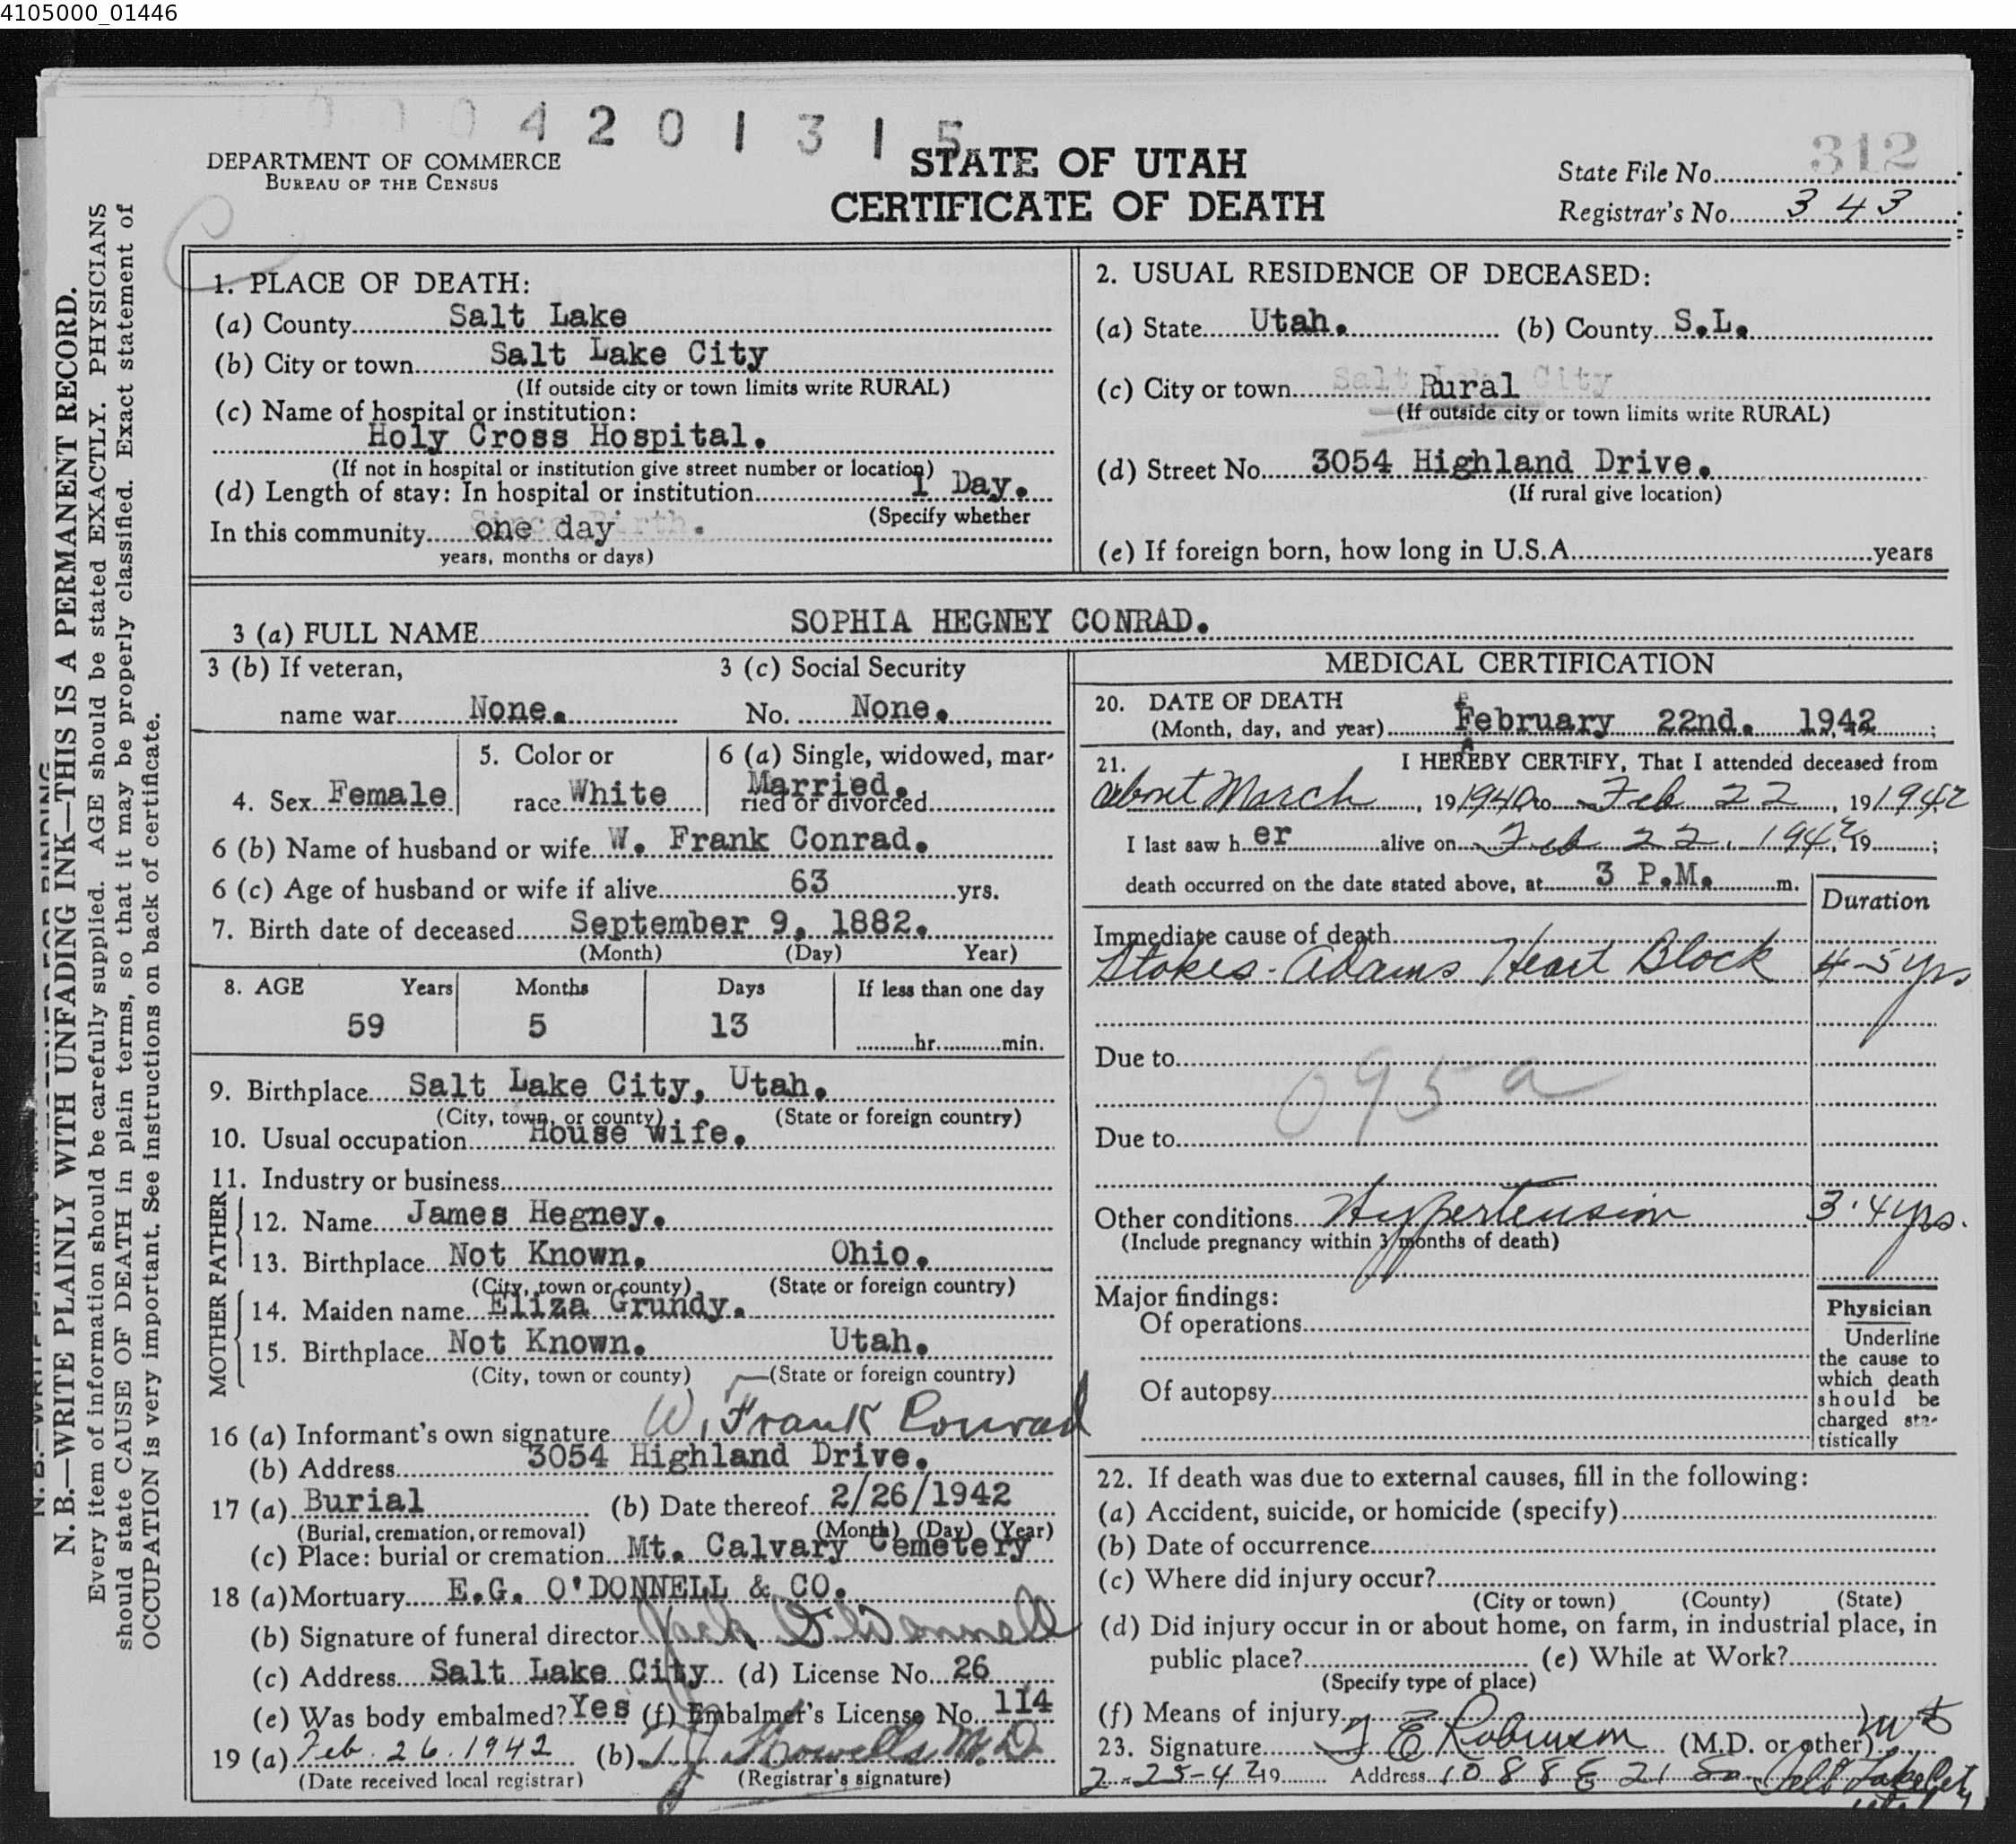 4105000_01446
4 2 0 1 3 1 5
DEPARTMENT OF COMMERCE
BUREAU OF THE CENSUS
STATE OF UTAH
CERTIFICATE OF DEATH
312
State File No.
Registrar's No. 343
N. B.—WRITE PLAINLY WITH UNFADING INK—THIS IS A PERMANENT RECORD.
Every item of information should be carefully supplied. AGE should be stated EXACTLY. PHYSICIANS
should state CAUSE OF DEATH in plain terms, so that it may be properly classified. Exact statement of
OCCUPATION is very important. See instructions on back of certificate.
1. PLACE OF DEATH:
(a) County Salt Lake
(b) City or town Salt Lake City
(If outside city or town limits write RURAL)
(c) Name of hospital or institution:
Holy Cross Hospital.
(If not in hospital or institution give street number or location)
(d) Length of stay: In hospital or institution 1 Day.
(Specify whether
In this community one day
years, months or days)
2. USUAL RESIDENCE OF DECEASED:
(a) State Utah. (b) County S.L.
(c) City or town Rural
(If outside city or town limits write RURAL)
(d) Street No. 3054 Highland Drive.
(If rural give location)
(e) If foreign born, how long in U.S.A. years
3 (a) FULL NAME SOPHIA HEGNEY CONRAD.
3 (b) If veteran, 3 (c) Social Security
name war None. No. None.
5. Color or 6 (a) Single, widowed, mar-
4. Sex Female race White ried or divorced Married.
6 (b) Name of husband or wife W. Frank Conrad.
6 (c) Age of husband or wife if alive 63 yrs.
7. Birth date of deceased September 9, 1882.
(Month) (Day) Year)
8. AGE Years Months Days If less than one day
59 5 13 hr. min.
9. Birthplace Salt Lake City, Utah.
(City, town, or county) (State or foreign country)
10. Usual occupation House wife.
11. Industry or business
FATHER
12. Name James Hegney.
13. Birthplace Not Known. Ohio.
(City, town or county) (State or foreign country)
MOTHER
14. Maiden name Eliza Grundy.
15. Birthplace Not Known. Utah.
(City, town or county) (State or foreign country)
16 (a) Informant's own signature W. Frank Conrad
(b) Address 3054 Highland Drive.
17 (a) Burial (b) Date thereof 2/26/1942
(Burial, cremation, or removal) (Month) (Day) (Year)
(c) Place: burial or cremation Mt. Calvary Cemetery
18 (a) Mortuary E.G. O'DONNELL & CO.
(b) Signature of funeral director Jack O'Donnell
(c) Address Salt Lake City (d) License No. 26
(e) Was body embalmed? Yes (f) Embalmer's License No. 114
19 (a) Feb. 26. 1942 (b) M.D.
(Date received local registrar) (Registrar's signature)
MEDICAL CERTIFICATION
20. DATE OF DEATH
(Month, day, and year) February 22nd. 1942;
21. I HEREBY CERTIFY, That I attended deceased from
about March, 19 1940 to Feb 22, 19 1942
I last saw h er alive on Feb 22, 1942, 19 ;
death occurred on the date stated above, at 3 P.M. m.
Duration
Immediate cause of death
Stokes-Adams Heart Block 4-5 yrs
Due to
095a
Due to
Other conditions Hypertension 3-4 yrs.
(Include pregnancy within 3 months of death)
Major findings:
Of operations
Of autopsy
Physician
Underline
the cause to
which death
should be
charged sta-
tistically
22. If death was due to external causes, fill in the following:
(a) Accident, suicide, or homicide (specify)
(b) Date of occurrence
(c) Where did injury occur?
(City or town) (County) (State)
(d) Did injury occur in or about home, on farm, in industrial place, in
public place? (e) While at Work?
(Specify type of place)
(f) Means of injury
23. Signature E Robinson (M.D. or other) MD
2-25-42 19 Address 1088 E 21 So Salt Lake City
Utah